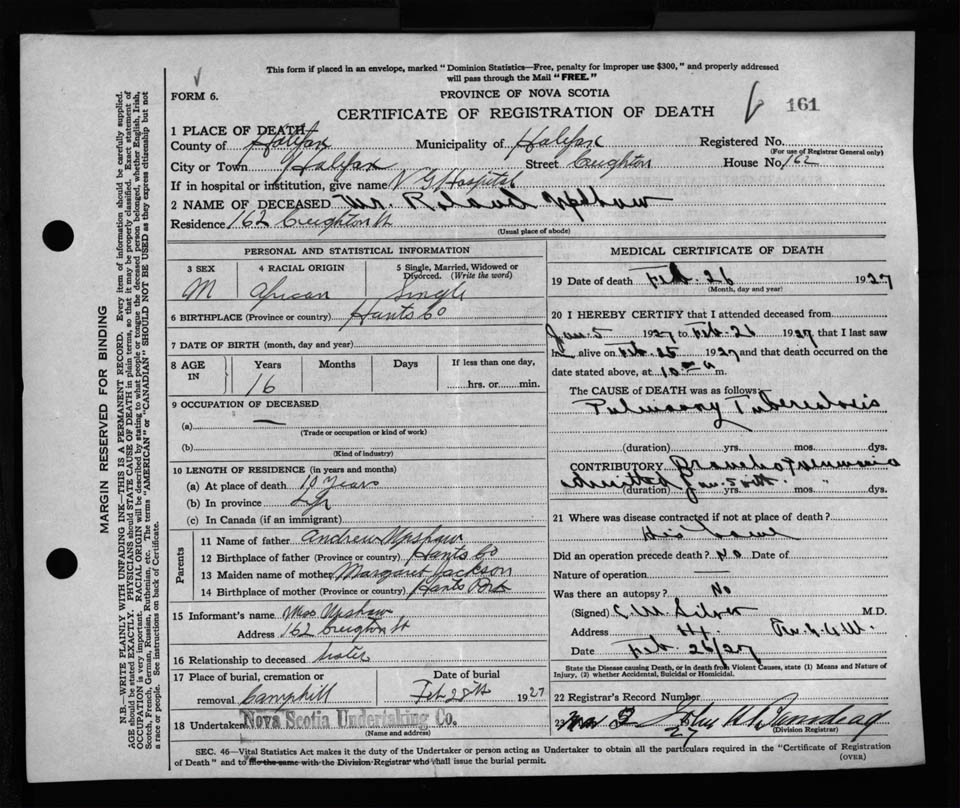 This form if placed in an envelope, marked "Dominion Statistics—Free, penalty for improper use $300," and properly addressed
will pass through the Mail "FREE."
FORM 6.
PROVINCE OF NOVA SCOTIA
CERTIFICATE OF REGISTRATION OF DEATH
161
1 PLACE OF DEATH
County of Halifax Municipality of Halifax Registered No.
(For use of Registrar General only)
City or Town Halifax Street Creighton House No. 162
If in hospital or institution, give name V G Hospital
2 NAME OF DECEASED Mr. Roland Upshaw
Residence 162 Creighton St
(Usual place of abode)
PERSONAL AND STATISTICAL INFORMATION
3 SEX 4 RACIAL ORIGIN 5 Single, Married, Widowed or
Divorced. (Write the word)
M African Single
6 BIRTHPLACE (Province or country) Hants Co
7 DATE OF BIRTH (month, day and year)
8 AGE IN Years Months Days If less than one day,
16 hrs. or min.
9 OCCUPATION OF DECEASED
(a) —
(Trade or occupation or kind of work)
(b)
(Kind of industry)
10 LENGTH OF RESIDENCE (in years and months)
(a) At place of death 10 Years
(b) In province Life
(c) In Canada (if an immigrant)
Parents
11 Name of father Andrew Upshaw
12 Birthplace of father (Province or country) Hants Co
13 Maiden name of mother Margaret Jackson
14 Birthplace of mother (Province or country) Hants
15 Informant's name Upshaw
Address 162 Creighton St
16 Relationship to deceased
17 Place of burial, cremation or removal Date of burial
Camphill Feb 28th 1927
18 Undertaker Nova Scotia Undertaking Co.
(Name and address)
MEDICAL CERTIFICATE OF DEATH
19 Date of death Feb. 26 1927
(Month, day and year)
20 I HEREBY CERTIFY that I attended deceased from
Jan. 5 1927 to Feb. 26 1927 that I last saw
alive on Feb. 25 1927 and that death occurred on the
date stated above, at 10 a m.
The CAUSE of DEATH was as follows:
Pulmonary Tuberculosis
(duration) yrs. mos. dys.
CONTRIBUTORY Broncho Pneumonia
admitted Jan. 5
(duration) yrs. mos. dys.
21 Where was disease contracted if not at place of death?
His home
Did an operation precede death? No Date of
Nature of operation —
Was there an autopsy? No
(Signed) M.D.
Address
Date Feb. 26/27
State the Disease causing Death, or in death from Violent Causes, state (1) Means and Nature of
Injury, (2) whether Accidental, Suicidal or Homicidal.
22 Registrar's Record Number
23
(Division Registrar)
SEC. 46—Vital Statistics Act makes it the duty of the Undertaker or person acting as Undertaker to obtain all the particulars required in the "Certificate of Registration
of Death" and to file the same with the Division Registrar who shall issue the burial permit.
(OVER)
MARGIN RESERVED FOR BINDING
N.B.—WRITE PLAINLY WITH UNFADING INK—THIS IS A PERMANENT RECORD. Every item of information should be carefully supplied.
AGE should be stated EXACTLY. PHYSICIANS should STATE CAUSE OF DEATH in plain terms, so that it may be properly classified. Exact statement of
OCCUPATION is very important. RACIAL ORIGIN will be described by stating to what people or tongue the deceased person belonged, whether English, Irish,
Scotch, French, German, Russian, Ruthenian, etc. The terms "AMERICAN" or "CANADIAN" SHOULD NOT BE USED as they express citizenship but not
a race or people. See instructions on back of Certificate.